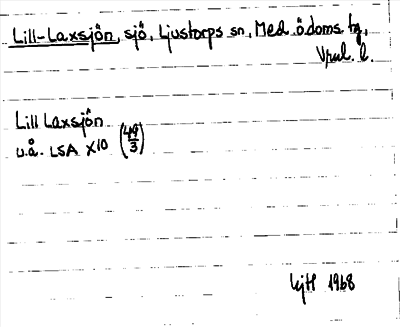 Lill-Laxsjön, sjö, Ljustorps sn, Med.ödoms tg,
Vnl. l.
Lill Laxsjön
u.å. LSA X10 (49/3)
LjH 1968